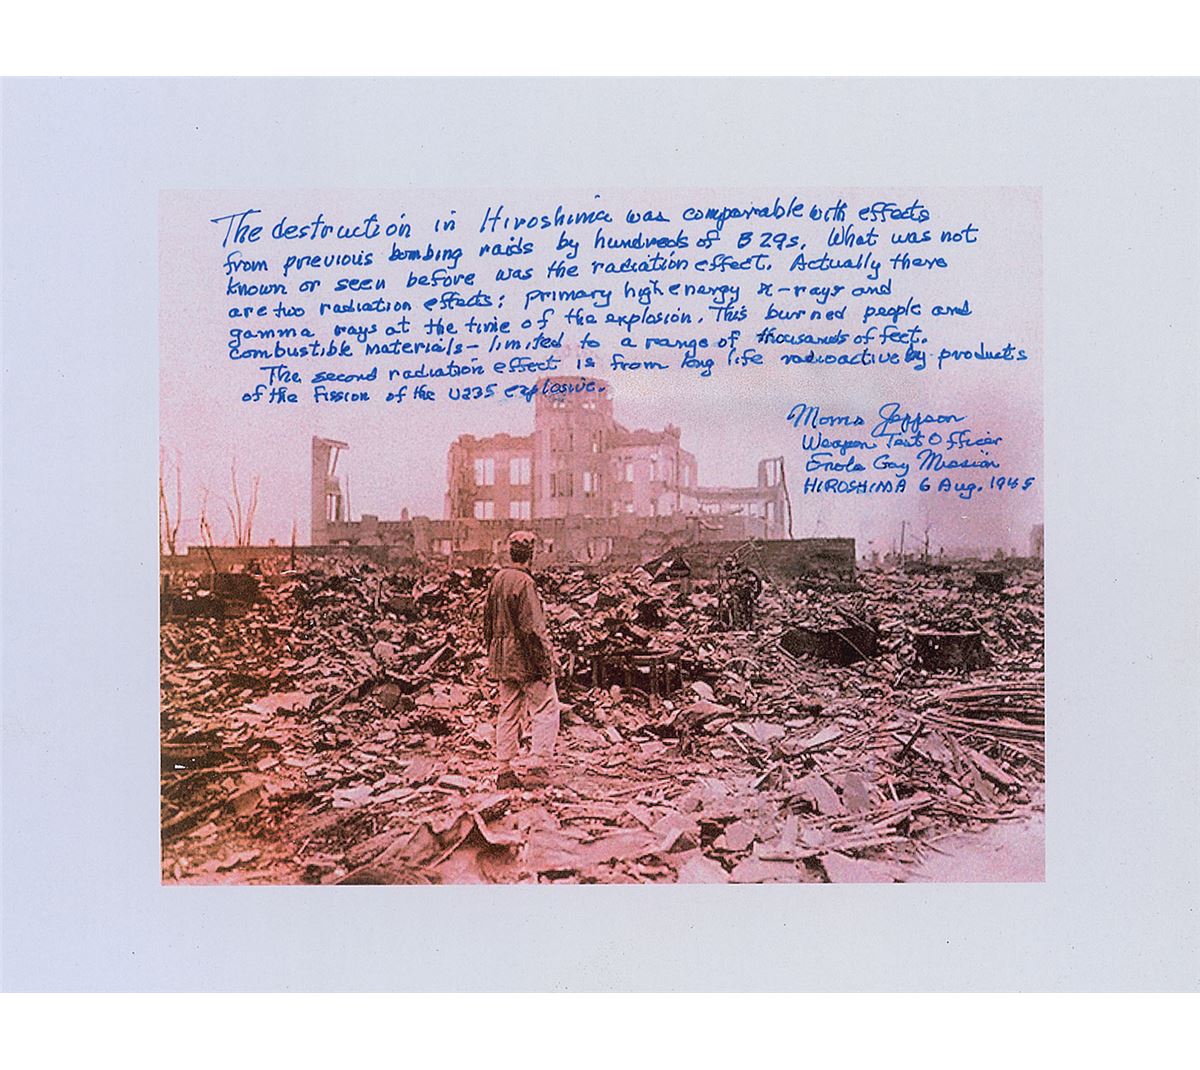 The destruction in Hiroshima was comparable with effects
from previous bombing raids by hundreds of B 29s. What was not
known or seen before was the radiation effect. Actually there
are two radiation effects: primary high energy x-rays and
gamma rays at the time of the explosion. This burned people and
combustible materials - limited to a range of thousands of feet.
The second radiation effect is from long life radioactive by products
of the fission of the U235 explosive.
Morris Jeppson
Weapon Test Officer
Enola Gay Mission
HIROSHIMA 6 Aug. 1945